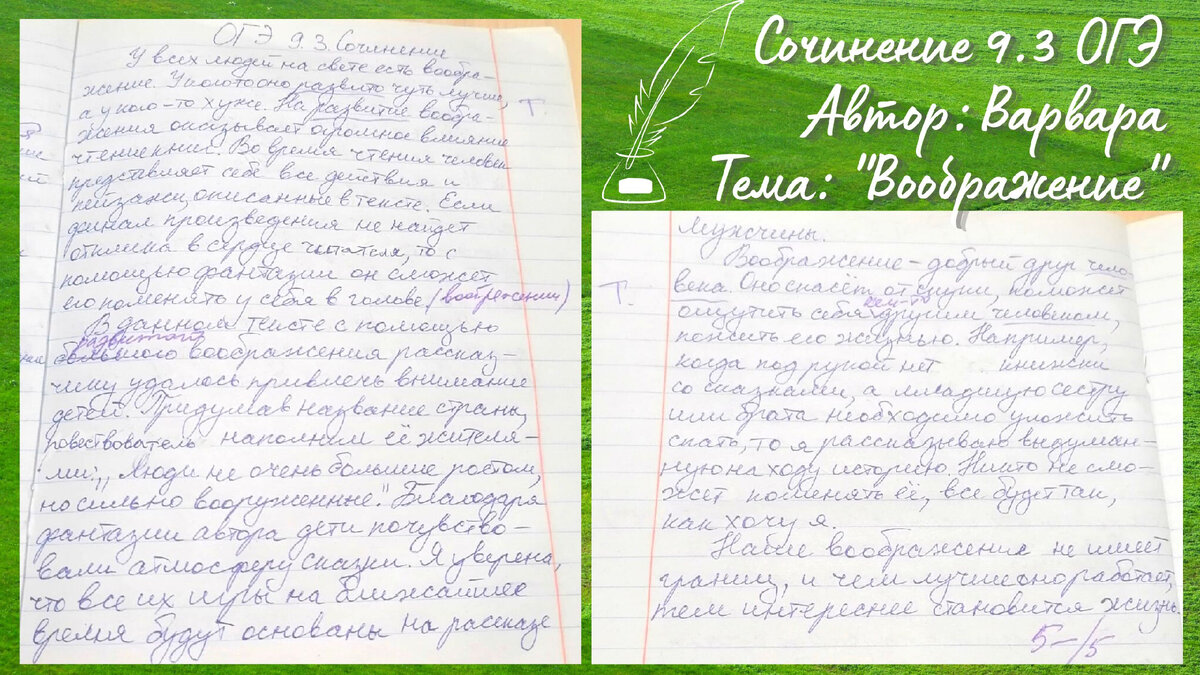 Сочинение 9.3 ОГЭ
Автор: Варвара
Тема: "Воображение"
ОГЭ 9.3 Сочинение
У всех людей на свете есть вообра-
жение. У кого то оно развито чуть лучше,
а у кого-то хуже. На развитие вообра-
жения оказывает огромное влияние
чтение книг. Во время чтения человек
представляет себе все действия и
пейзажи, описанные в тексте. Если
финал произведения не найдет
отклика в сердце читателя, то с
помощью фантазии он сможет
его поменять у себя в голове (воображении)
В данном тексте с помощью
развитого
большого воображения рассказ-
чику удалось привлечь внимание
детей. Придумав название страны,
повествователь наполнил её жителя-
ми: „Люди не очень большие ростом,
но сильно вооруженные". Благодаря
фантазии автора дети почувство-
вали атмосферу сказки. Я уверена,
что все их игры на ближайшее
время будут основаны на рассказе
Т.
мужчины.
Воображение - добрый друг чело-
века. Оно спасёт от скуки, поможет
кем-то
ощутить себя другим человеком,
пожить его жизнью. Например,
когда под рукой нет книжки
со сказками, а младшую сестру
или брата необходимо уложить
спать, то я рассказываю выдуман-
ную на ходу историю. Никто не смо-
жет поменять её, все будет так,
как хочу я.
Наше воображение не имеет
границ, и чем лучше оно работает,
тем интереснее становится жизнь.
Т.
5-/5